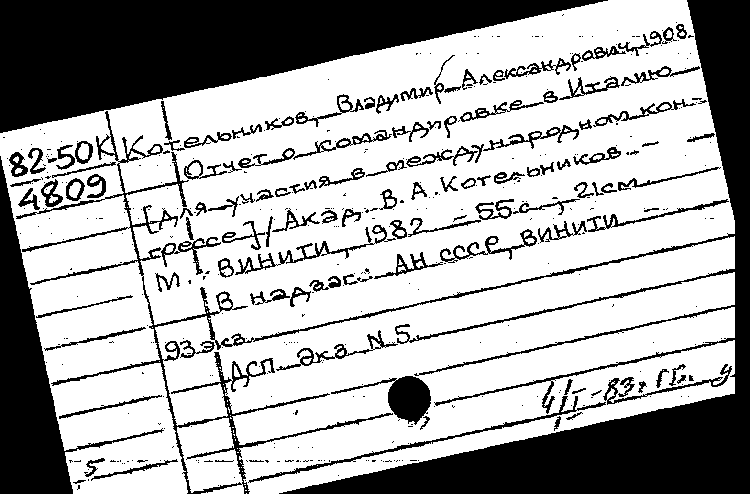 82-50К
4809
Котельников, Владимир Александрович, 1908
Отчет о командировке в Италию
[для участия в международном кон-
грессе] / Акад. В. А. Котельников. –
М. : ВИНИТИ, 1982 – 55с. ; 21см
В надзаг.: АН СССР, ВИНИТИ –
93 экз.
ДСП Экз N 5
4/I-83г.
5